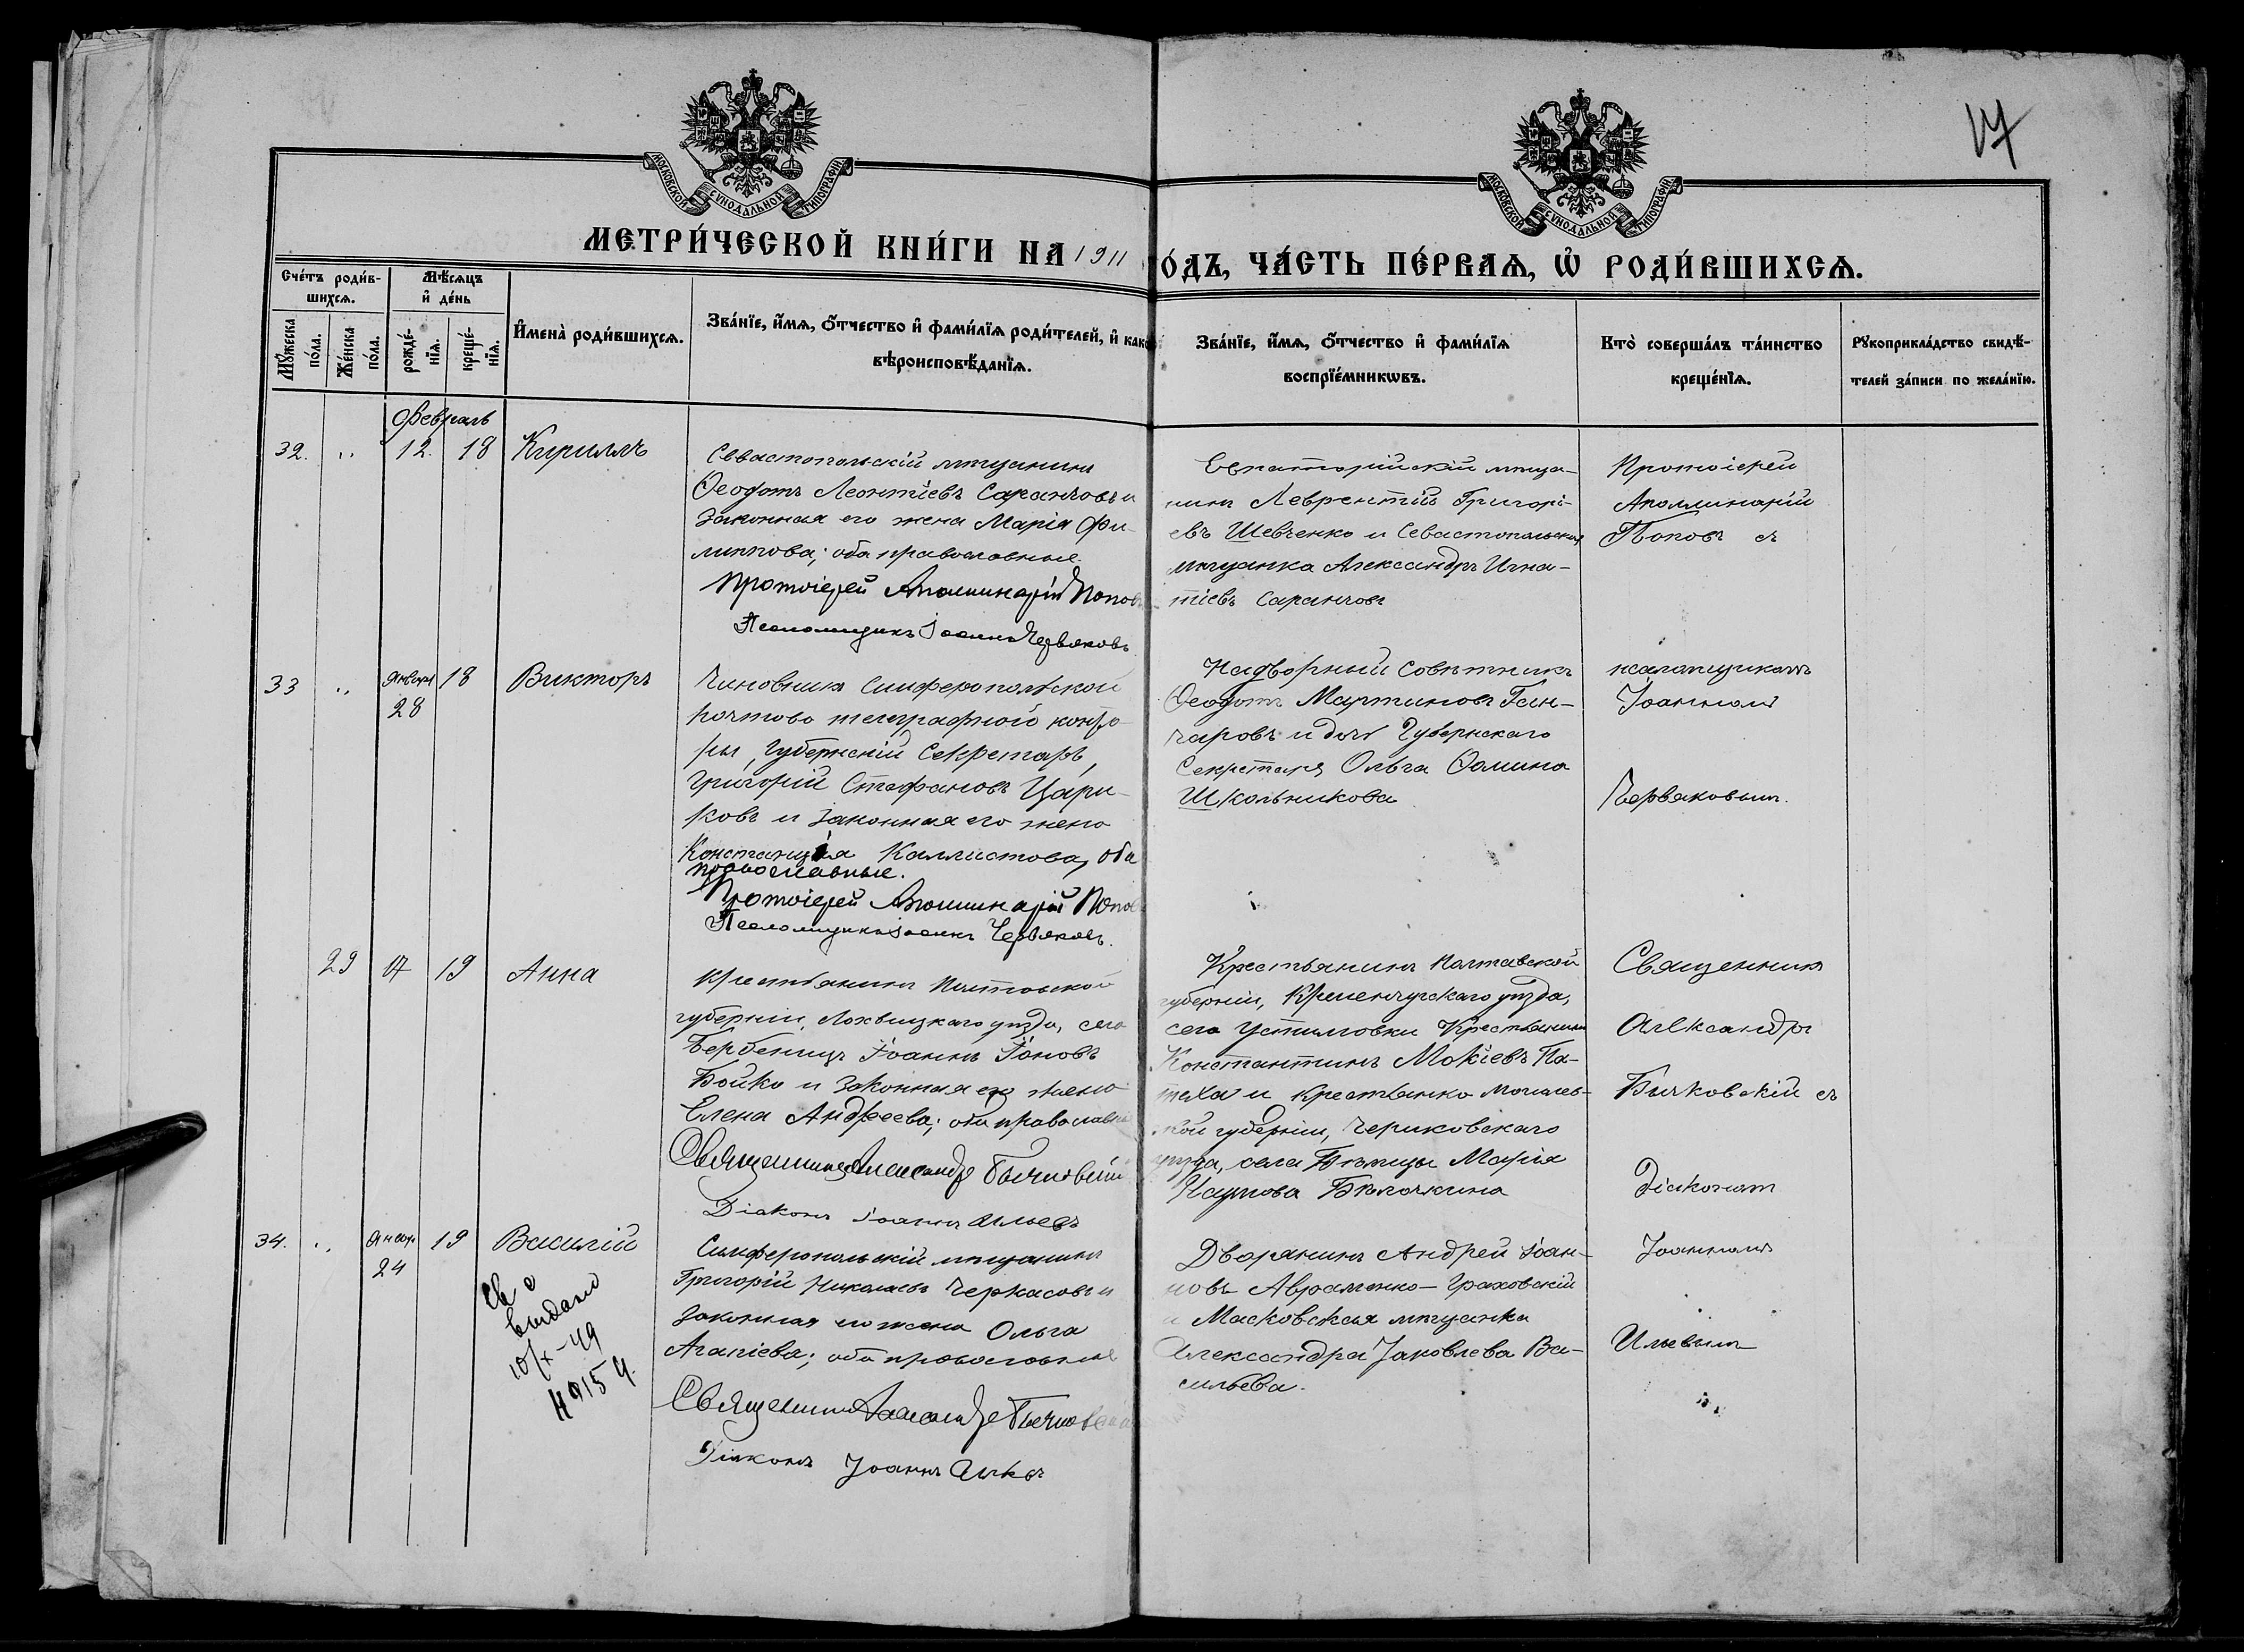 17
МОСКОВСКОЙ СѴНОДАЛЬНОЙ ТИПОГРАФІИ
МОСКОВСКОЙ СѴНОДАЛЬНОЙ ТИПОГРАФІИ
МЕТРИ́ЧЕСКОЙ КНИ́ГИ НА 1911
О́ДЪ, ЧА́СТЬ ПЕ́РВАѦ, Ѡ РОДИ́ВШИХСѦ.
Сче́тъ роди́в-
шихсѧ.
Мѣ́сѧцъ
и҆ де́нь
Мꙋ́жеска
по́ла.
Же́нска
по́ла.
рожде́-
нїѧ.
креще́-
нїѧ.
И҆мена̀ роди́вшихсѧ.
Зва́нїе, и҆́мѧ, ѻ҆́тчество и҆ фами́лїѧ роди́телей, и҆ как
вѣроисповѣ́данїѧ.
Зва́нїе, и҆́мѧ, ѻ҆́тчество и҆ фами́лїѧ
воспрїе́мникѡвъ.
Кто̀ соверша́лъ та́инство
креще́нїѧ.
Рꙋкоприкла́дство свидѣ́-
телей за́писи по жела́нїю.
Февраль
32. " 12. 18 Кириллъ
Севастопольскій мѣщанинъ
Ѳеодотъ Леонтіевъ Саранчовъ и
законная его жена Марія Фи-
липпова; оба православные.
Протоіерей Аполлинарій Попов
Псаломщикъ Іоаннъ Червяковъ
Евпаторійскій мѣща-
нинъ Леврентій Григорі-
евъ Шевченко и Севастопольская
мѣщанка Александръ Игна-
тіевъ Саранчовъ
Протоіерей
Аполлинарій
Поповъ съ
33 " Января 18 Викторъ
28
Чиновникъ Симферопольской
почтово телеграфной конто-
ры, Губернскій Секретарь,
Григорій Стефановъ Цари-
ковъ и законная его жена
Констанція Каллистова, оба
православные.
Протоіерей Аполлинарій Попов
Псаломщикъ Іоаннъ Червяковъ.
Надворный Совѣтникъ
Ѳеодотъ Мартиновъ Ган-
чаровъ и дочь Губернскаго
Секретаря Ольга Ѳомина
Школьникова
псаломщикомъ
Іоанномъ
Червяковымъ.
29 17 19 Анна
Крестьянинъ Полтавской
губерніи, Лохвицкаго уѣзда, села
Бербеницъ Іоаннъ Іоновъ
Бойко и законная его жена
Елена Андреева; оба православны
Священникъ Александр Бычковскій
Діаконъ Іоаннъ Ильевъ
Крестьянинъ Полтавской
губерніи, Кременчугскаго уѣзда,
села Устимовки Крестьянинъ
Константинъ Мокіевъ Па-
теха и крестьянка Могилев-
ской губерніи, Чериковскаго
уѣзда, села Марія
Наумова Бѣлочкина
Священникъ
Александръ
Бычковскій съ
Діакономъ
34. " Январ. 19 Василій
24
Св о
выдано
10/X-49
Симферопольскій мѣщанинъ
Григорій Николаевъ Черкасовъ и
законная его жена Ольга
Агапіева; оба православные
Священникъ Александр Бычковскій
Діаконъ Іоаннъ Ильевъ
Дворянинъ Андрей Іоан-
новъ Авраменко-Граховскій
и Масковская мѣщанка
Александра Іаковлева Ва-
сильева.
Іоанномъ
Ильевымъ